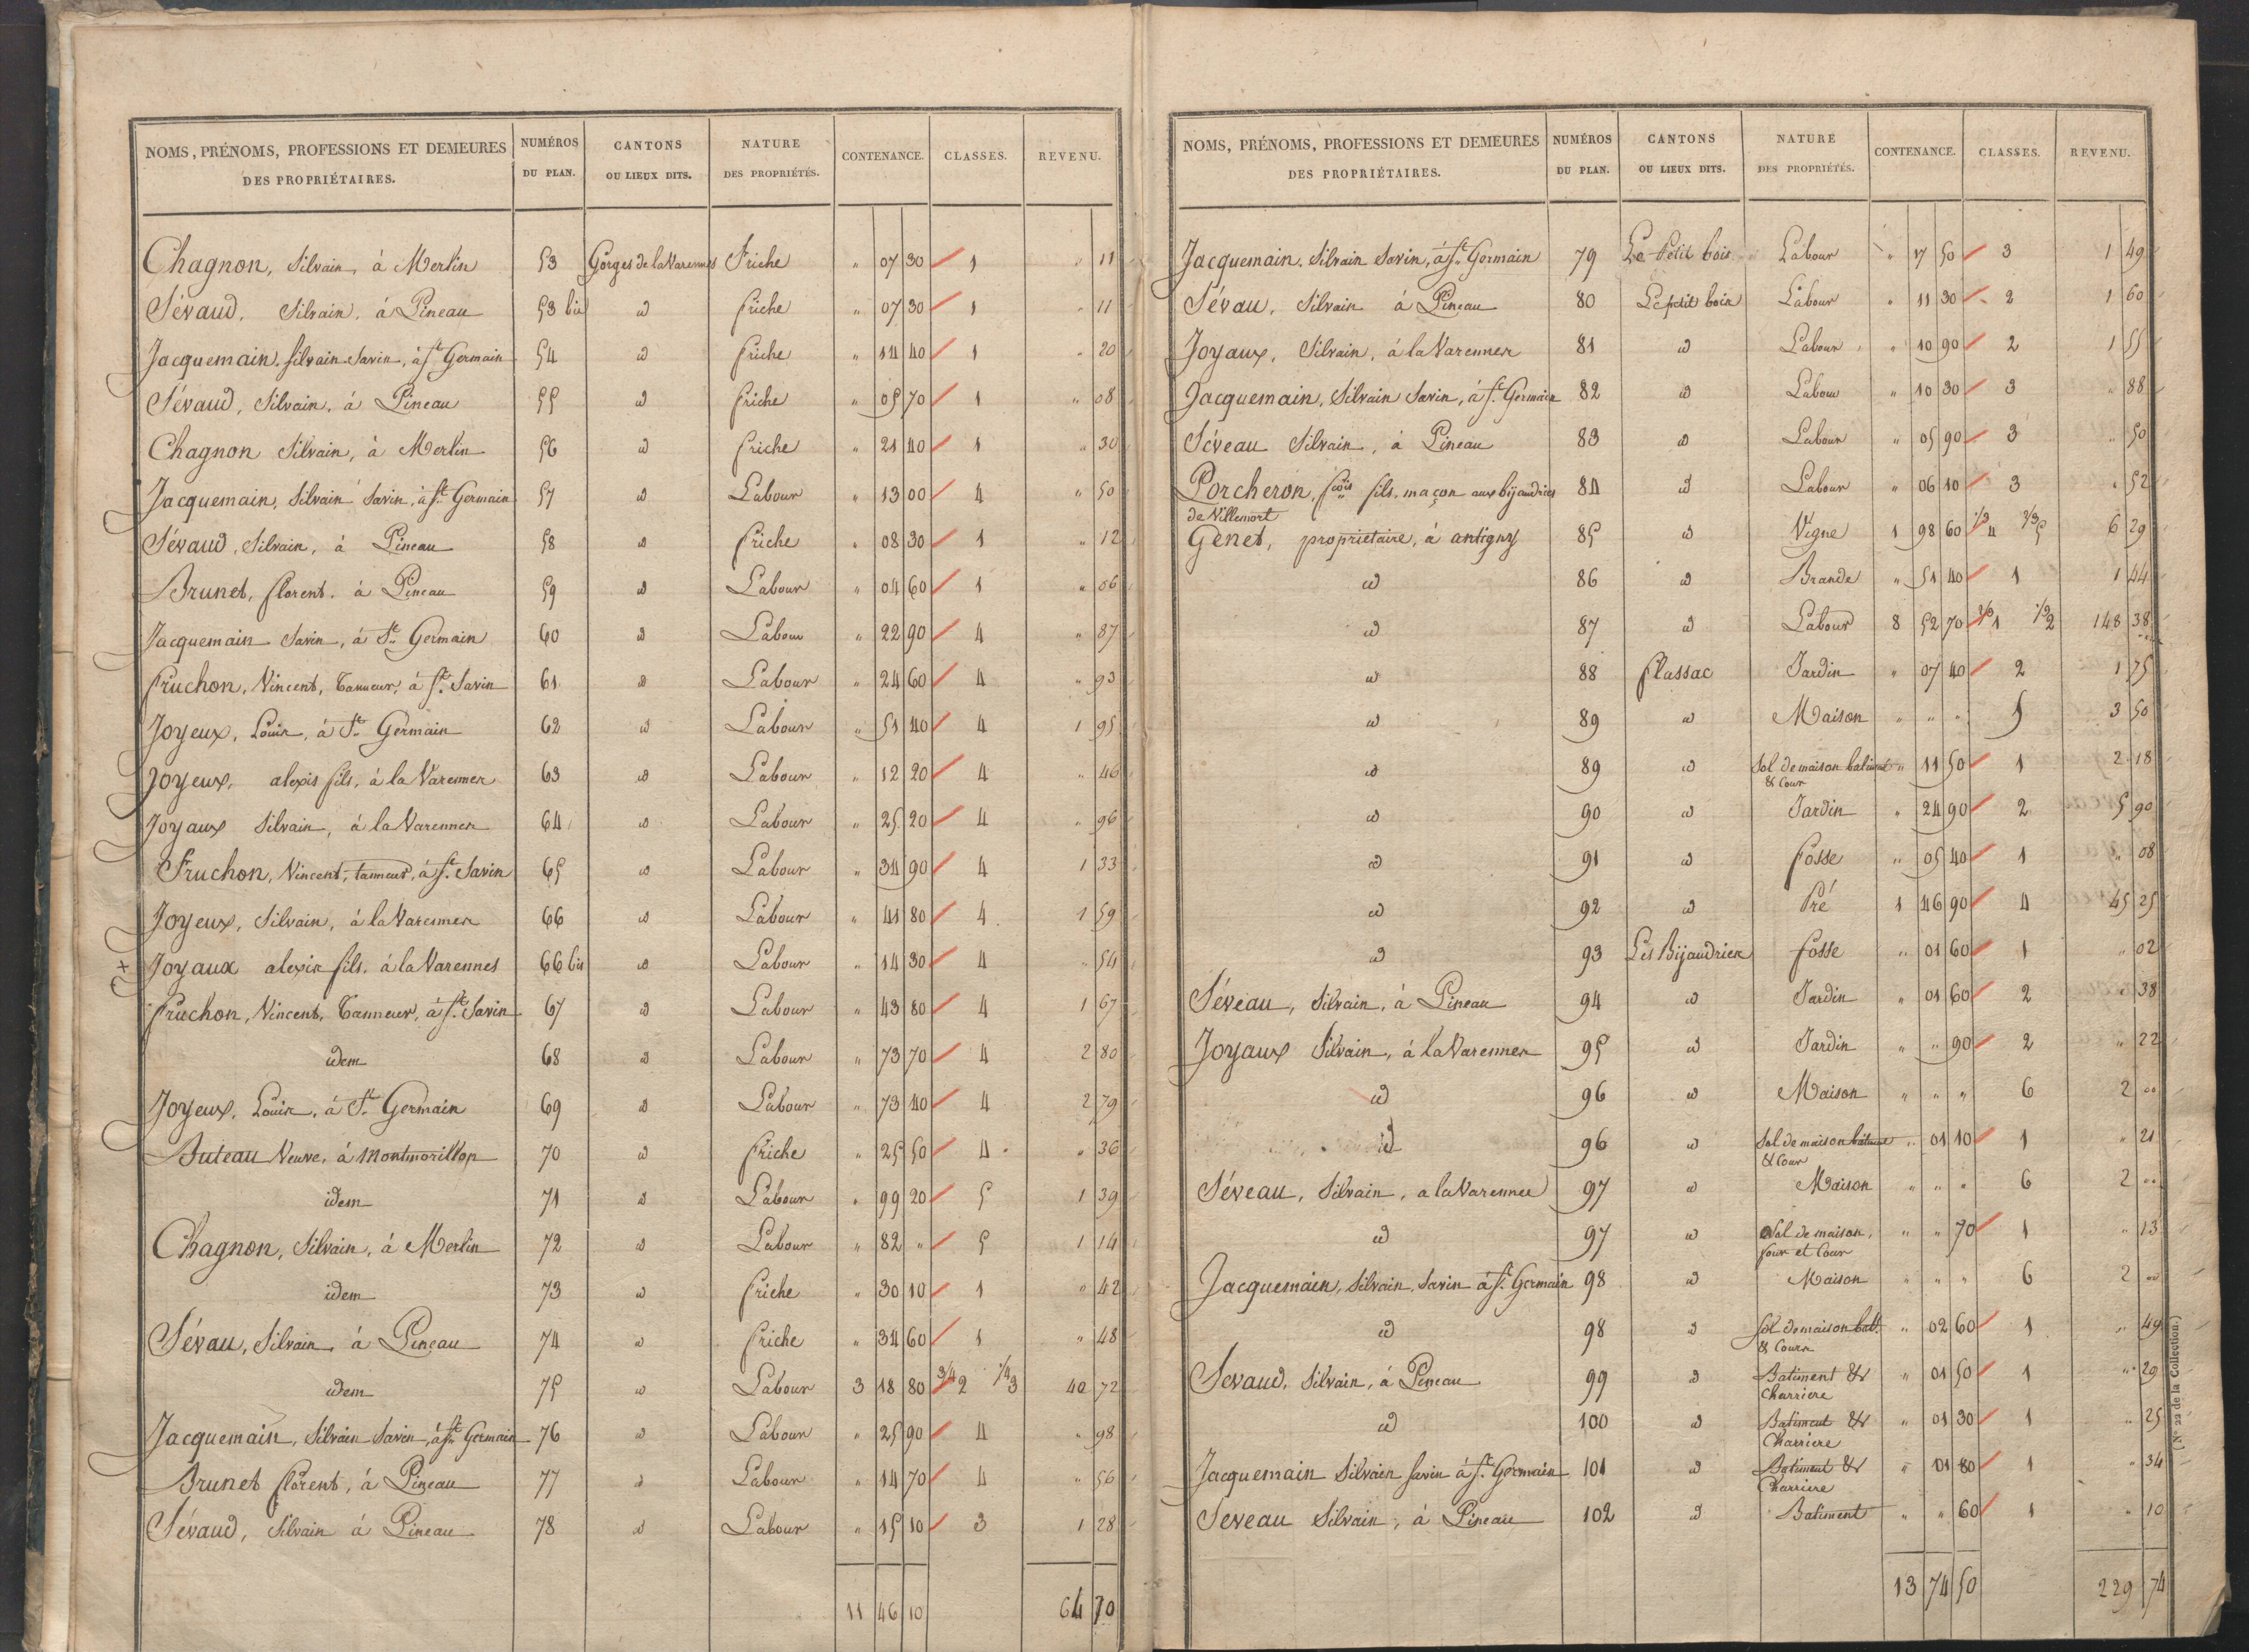 NOMS, PRÉNOMS, PROFESSIONS ET DEMEURES DES PROPRIÉTAIRES. NUMÉROS DU PLAN. CANTONS OU LIEUX DITS. NATURE DES PROPRIÉTÉS. CONTENANCE. CLASSES. REVENU.
Chagnon, Silvain, à Merlin 53 Gorges de la Varennes Friche " 07 30 1 " 11
Sévaud, Silvain, à Pineau 53 bis id friche " 07 30 1 " 11
Jacquemain, Silvain Savin, à St Germain 54 id friche " 14 40 1 " 20
Sévaud, Silvain, à Pineau 55 id friche " 05 70 1 " 08
Chagnon Silvain, à Merlin 56 id friche " 21 40 1 " 30
Jacquemain, Silvain Savin, à St Germain 57 id Labour " 13 00 4 " 50
Sévaud, Silvain, à Pineau 58 id friche " 08 30 1 " 12
Brunet, florent, à Pineau 59 id Labour " 04 60 1 " 06
Jacquemain Savin, à St Germain 60 id Labour " 22 90 4 " 87
fruchon, Vincent, Tanneur, à St Savin 61 id Labour " 24 60 4 " 93
Joyeux, Louis, à St Germain 62 id Labour " 51 40 4 1 95
Joyeux, alexis fils, à la Varennes 63 id Labour " 12 20 4 " 46
Joyaux Silvain, à la Varennes 64 id Labour " 25 20 4 " 96
Fruchon, Vincent, tanneur, à St Savin 65 id Labour " 34 90 4 1 33
Joyeux, Silvain, à la Varennes 66 id Labour " 41 80 4 1 59
Joyaux alexis fils, à la Varennes 66 bis id Labour " 14 30 4 " 54
fruchon, Vincent, Tanneur, à St Savin 67 id Labour " 43 80 4 1 67
idem 68 id Labour " 73 70 4 2 80
Joyeux, Louis, à St Germain 69 id Labour " 73 40 4 2 79
Buteau Veuve, à Montmorillon 70 id friche " 25 50 4 " 36
idem 71 id Labour " 99 20 5 1 39
Chagnon, Silvain, à Merlin 72 id Labour " 82 " 5 1 14
idem 73 id friche " 30 10 1 " 42
Sévau, Silvain, à Pineau 74 id friche " 34 60 1 " 48
idem 75 id Labour 3 18 80 3/4 2 1/4 3 40 72
Jacquemain, Silvain Savin, à St Germain 76 id Labour " 25 90 4 " 98
Brunet florent, à Pineau 77 id Labour " 14 70 4 " 56
Sévaud, Silvain à Pineau 78 id Labour " 15 10 3 1 28
11 46 10 64 70
NOMS, PRÉNOMS, PROFESSIONS ET DEMEURES DES PROPRIÉTAIRES. NUMÉROS DU PLAN. CANTONS OU LIEUX DITS. NATURE DES PROPRIÉTÉS. CONTENANCE. CLASSES. REVENU.
Jacquemain, Silvain Savin, à St Germain 79 Le Petit bois Labour " 17 50 3 1 49
Sévau, Silvain à Pineau 80 Le petit bois Labour " 11 30 2 1 60
Joyaux, Silvain, à la Varennes 81 id Labour " 10 90 2 1 55
Jacquemain, Silvain Savin, à St Germain 82 id Labour " 10 30 3 " 88
Séveau Silvain, à Pineau 83 id Labour " 05 90 3 " 50
Porcheron, fçois fils, maçon aux bijaudries 84 id Labour " 06 10 3 " 52
de Villemort
Genet, propriétaire, à antigny 85 id Vigne 1 98 60 1/3 4 2/3 5 6 29
id 86 id Brande " 51 40 1 1 44
id 87 id Labour 8 52 70 1/2 1 1/2 2 148 38
id 88 flassac Jardin " 07 40 2 1 75
id 89 id Maison " " " 5 3 50
id 89 id Sol de maison batiment " 11 50 1 2 18
& Cour
id 90 id Jardin " 24 90 2 5 90
id 91 id fosse " 05 40 1 " 08
id 92 id Pré 1 46 90 4 45 25
id 93 Les Bijaudries fosse " 01 60 1 " 02
Séveau, Silvain, à Pineau 94 id Jardin " 01 60 2 " 38
Joyaux Silvain, à la Varennes 95 id Jardin " " 90 2 " 22
id 96 id Maison " " " 6 2 "
id 96 id Sol de maison batiment " 01 10 1 " 21
& Cour
Séveau, Silvain, a la Varennes 97 id Maison " " " 6 2 "
id 97 id Sol de maison, " " 70 1 " 13
four et Cour
Jacquemain, Silvain, Savin à St Germain 98 id Maison " " " 6 2 "
id 98 id Sol de maison bat. " 02 60 1 " 49
& Cours
Sevaud, Silvain, à Pineau 99 id Batiment & " 01 50 1 " 29
Charriere
id 100 id Batiment & " 01 30 1 " 25
Charriere
Jacquemain Silvain Savin à St Germain 101 id Batiment & " 01 80 1 " 34
Charriere
Seveau Silvain, à Pineau 102 id Batiment " " 60 1 " 10
13 74 50 229 74
(N° 22 de la Collection.)